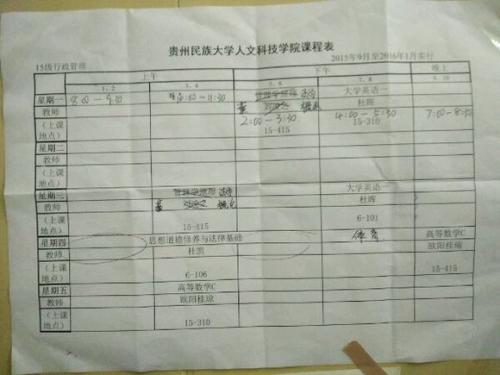 贵州民族大学人文科技学院课程表
15级行政管理 2015年9月至2016年1月实行
上午 下午 晚上
1、2 3、4 5、6 7、8 9、10
星期一 8:00-9:30 10:00-11:30 管理学原理 大学英语一
教师 杜晖
(上课地点) 2:00-3:30 4:00-5:30 7:00-8:30
15-415 15-310
星期二
教师
(上课地点)
星期三 管理学原理 大学英语一
教师 杜晖
(上课地点) 15-415 6-101
星期四 思想道德修养与法律基础 体育 高等数学C
教师 杜凯 欧阳桂琼
(上课地点) 6-106 15-415
星期五 高等数学C
教师 欧阳桂琼
(上课地点) 15-310